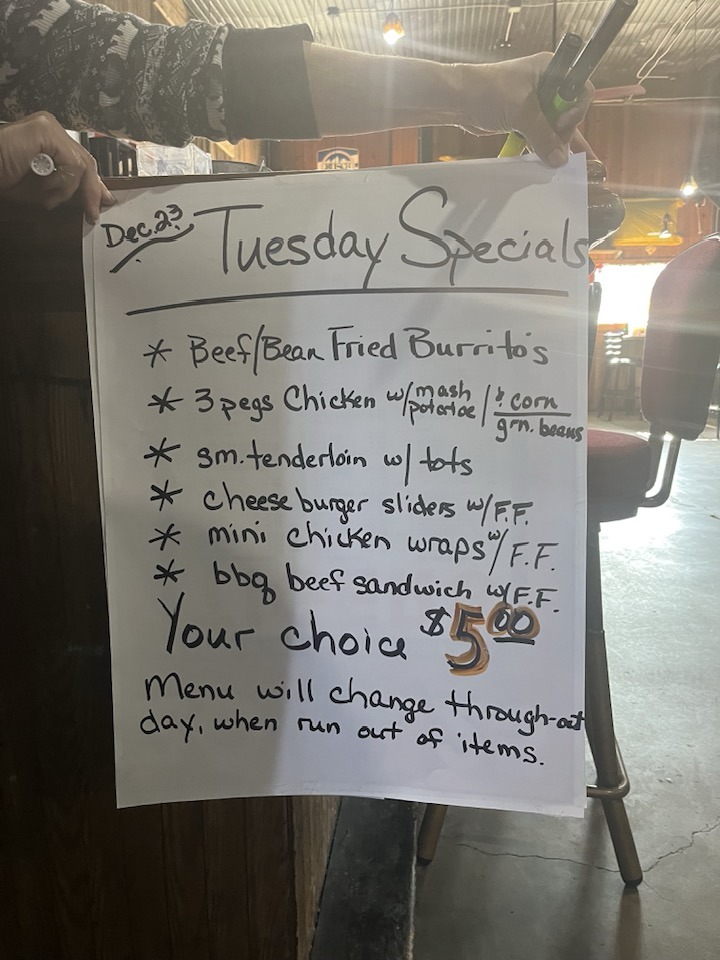 Dec. 23
Tuesday Specials
* Beef/Bean Fried Burrito's
* 3 pegs Chicken w/ mash potatoe / & corn
grn. beans
* sm. tenderloin w/ tots
* cheese burger sliders w/ F.F.
* mini chicken wraps w/ F.F.
* bbq beef sandwich w/ F.F.
Your choice $5.00
Menu will change through-out
day, when run out of items.